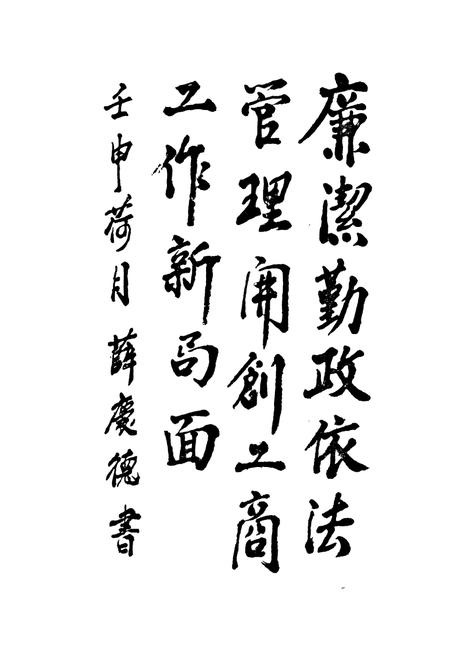 廉潔勤政依法
管理開創工商
工作新局面
壬申荷月薛慶德書